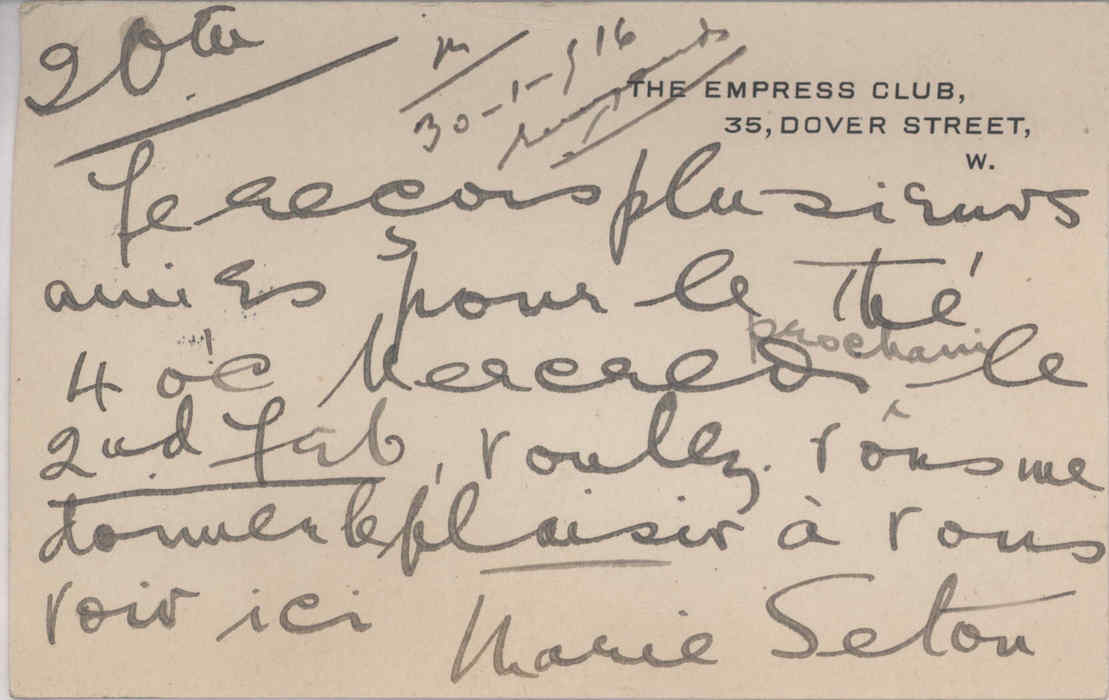 20th
30-1-916
THE EMPRESS CLUB,
35, DOVER STREET,
W.
Je reçois plusieurs
amies pour le Thé
prochain
4 o'c Mercredi le
2nd Feb, voulez-vous me
donner le plaisir à vous
voir ici Marie Seton